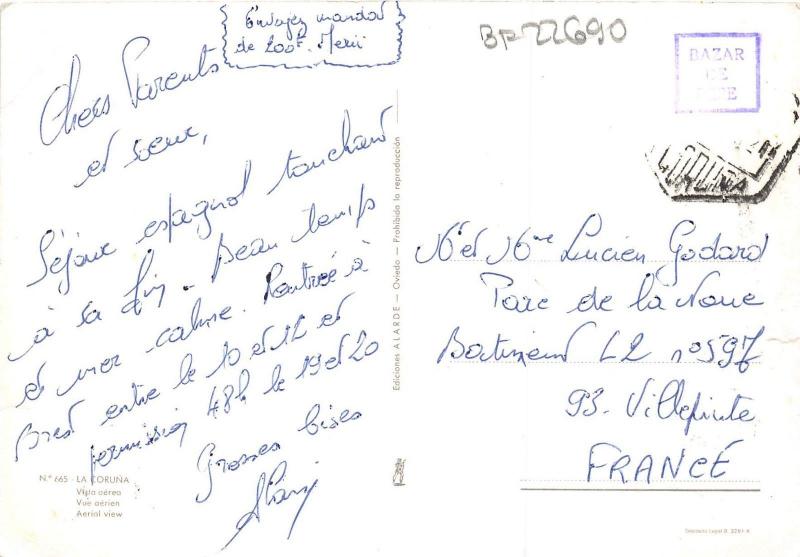 Envoyez mandat
de 200f. Merci
BF 22690
BAZAR
DE
CORUÑA
Chers Parents
et soeur,
Séjour espagnol touchant
à sa fin. Beau temps
et mer calme. Rentrée à
Brest entre le 10 et 12 et
permission 48h le 19 et 20
Grosses bises
Mr et Mme Lucien Godard
Parc de la Noue
Batiment L2 n° 597
93. Villepinte
FRANCE
Ediciones ALARDE — Oviedo — Prohibida la reproducción
N.º 665 - LA CORUÑA
Vista aérea
Vue aérien
Aerial view
Depósito Legal O.